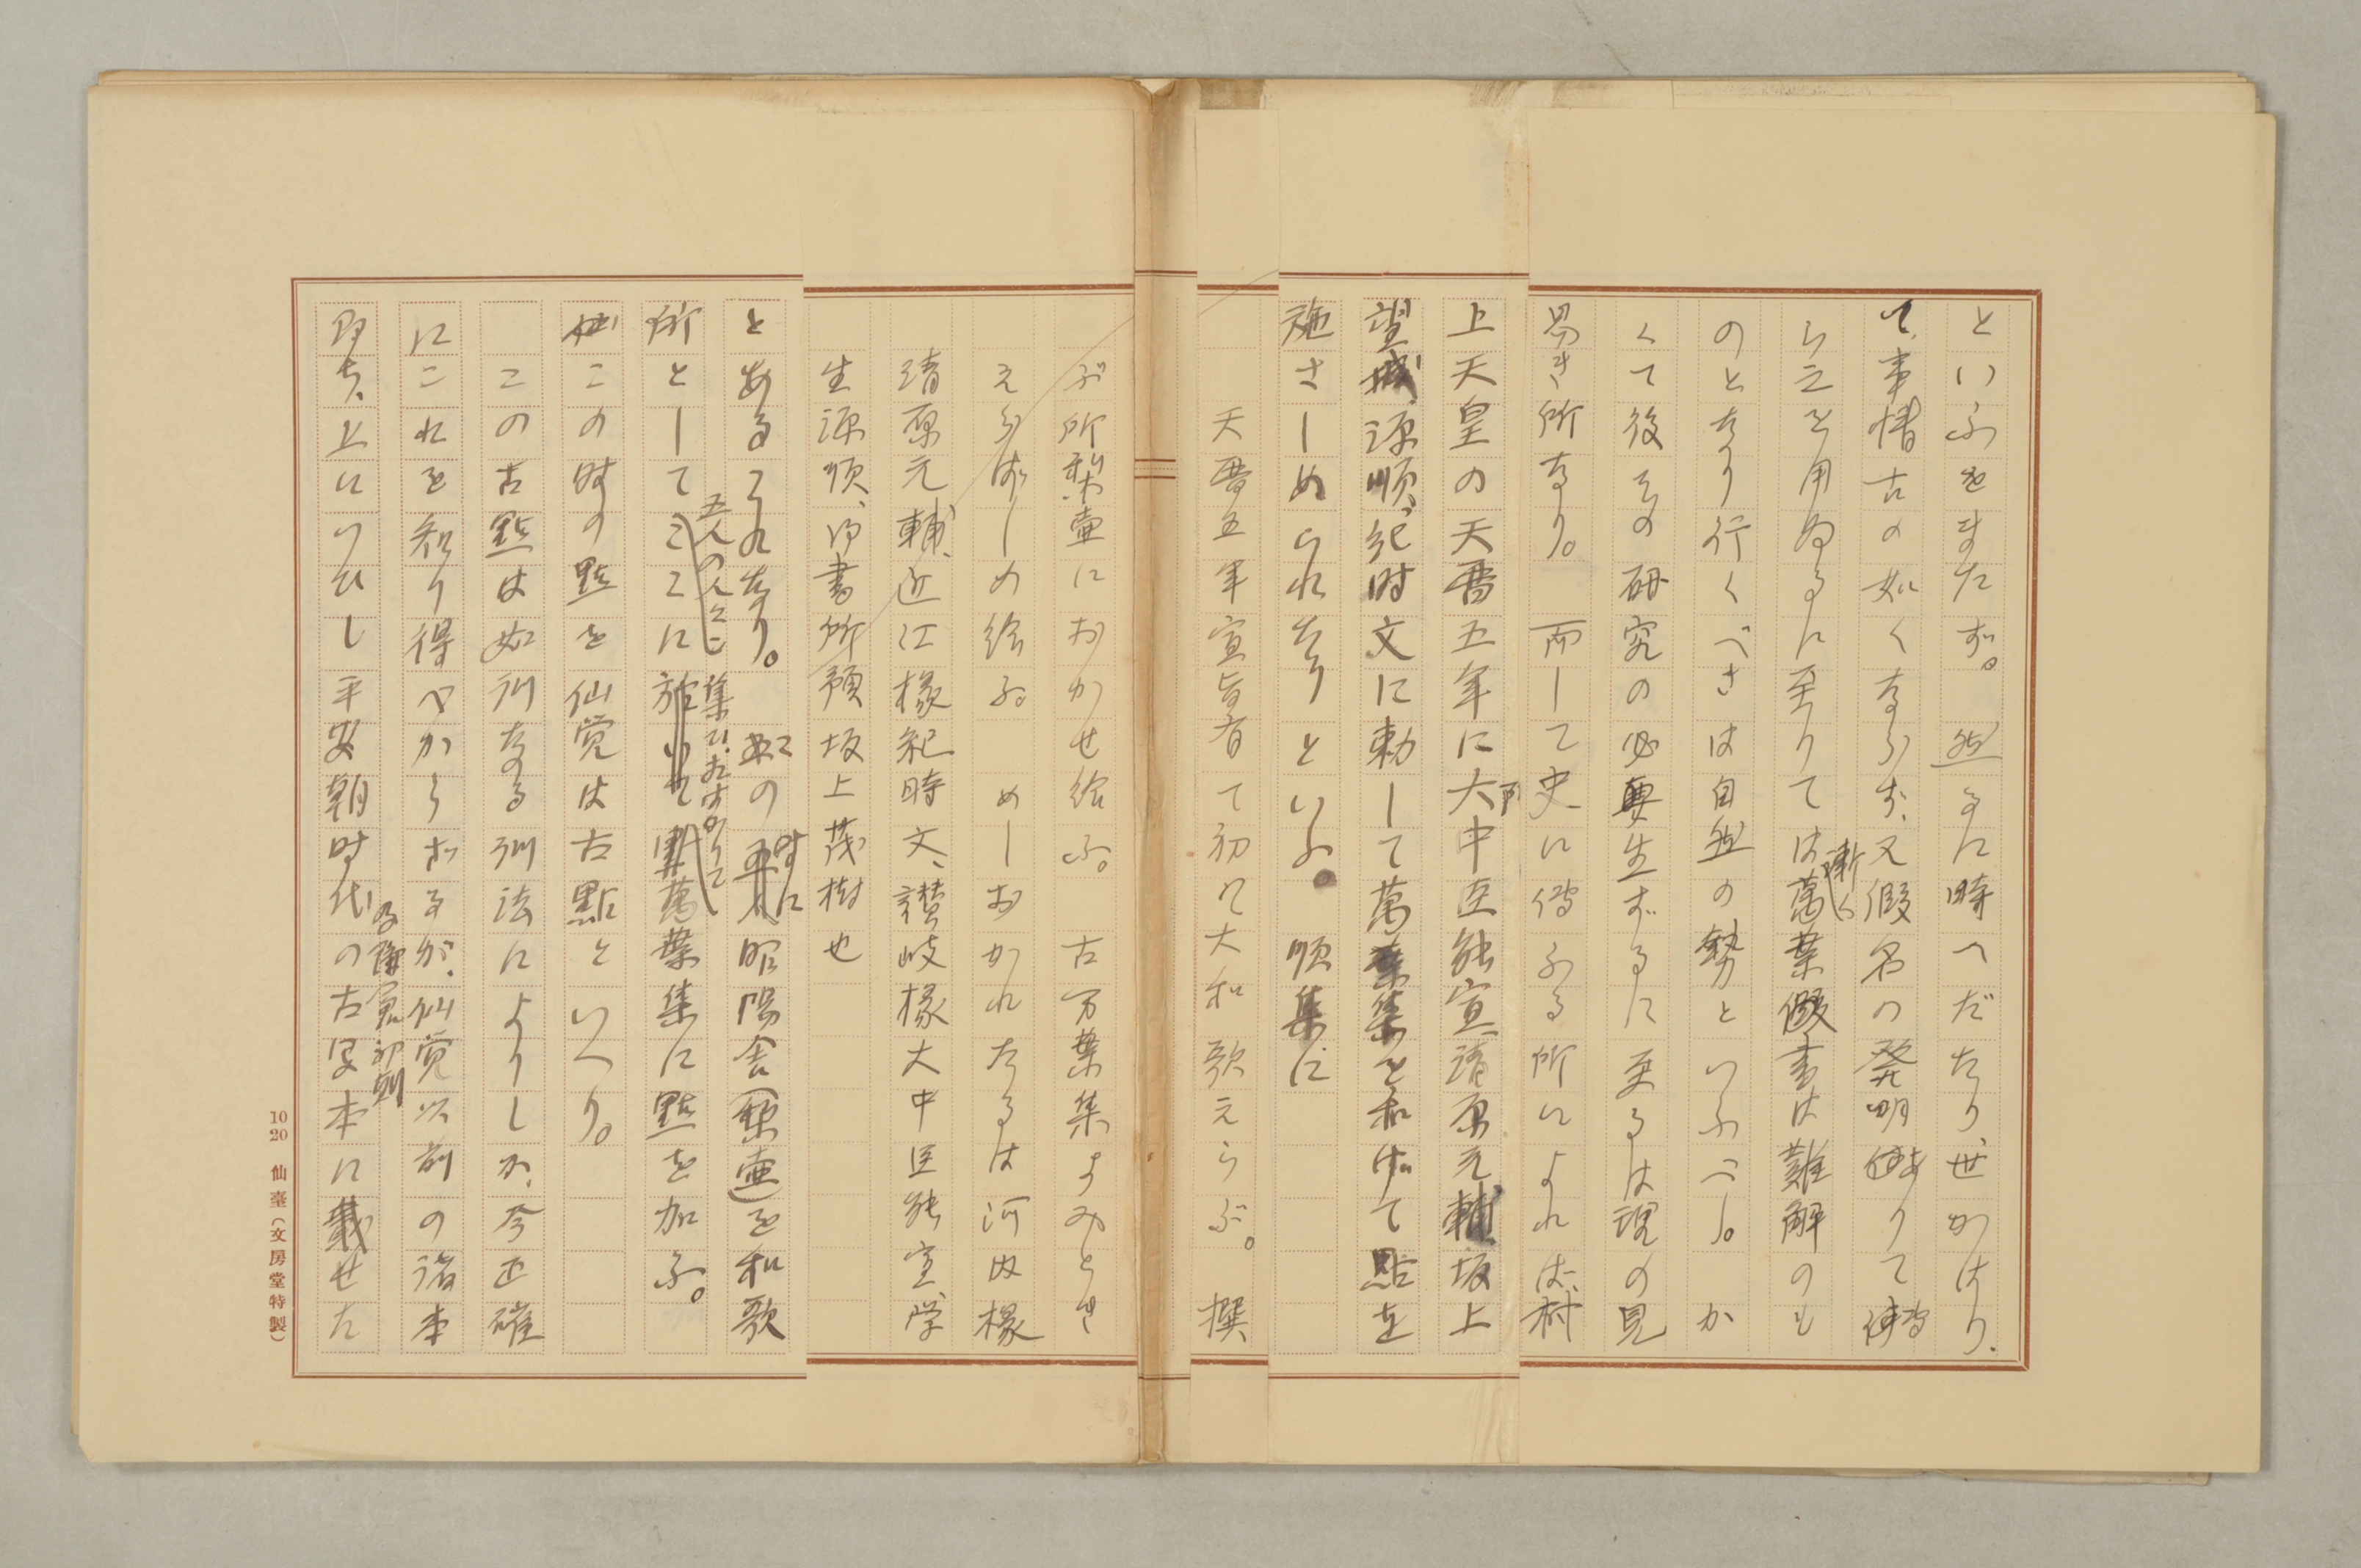 といふをまたず。然るに時へだたり、世かはり、
て、事情古の如くならず、又假名の発明ありて
ら之を用ゐるに至りては漸く萬葉假書は難解のも
のとなり行くべきは自然の勢といふべし。か
くて後その研究の必要生ずるに至るは理の見
易き所なり。而して史に傳ふる所によれば、村
上天皇の天暦五年に大中臣能宣、清原元輔、坂上
望城、源順、紀時文に勅して萬葉集を和げて點を
施さしめられたりといふ。順集に
天暦五年宣旨有て初めて大和歌えらぶ。撰
ぶ所梨壷におかせ給ふ。古万葉集よみとき
えらばしめ給ふ。めしおかれたるは河内掾
清原元輔、近江掾紀時文、讃岐掾大中臣能宣、学
生源順、御書所預坂上茂樹也
とあるこれなり。この時に昭陽舎(梨壷)を和歌
所として五人の人々ここに集ひ、はかりて萬葉集に點を加ふ。
この時の點を仙覚は古點といへり。
この古點は如何なる訓法によりしか、今正確
にこれを知り得べからざるが、仙覚以前の諸本
即ち、上にいひし平安朝時代の古写本に載せた
10 20 仙臺(文房堂特製)